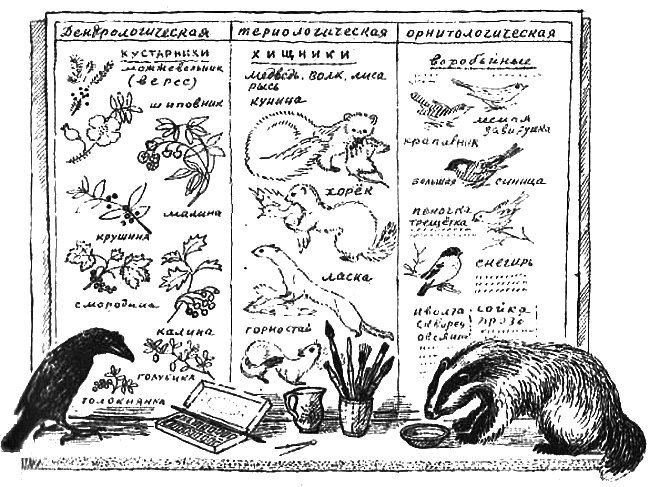 Дендрологическая
териологическая
орнитологическая
кустарники
можжевельник
(верес)
шиповник
малина
крушина
смородина
калина
голубика
толокнянка
хищники
медведь. волк. лиса
рысь
куница
хорёк
ласка
горностай
воробьиные
лесная
завирушка
крапивник
большая синица
пеночка
трещётка
снегирь
иволга
скворец
овсянк
сойка